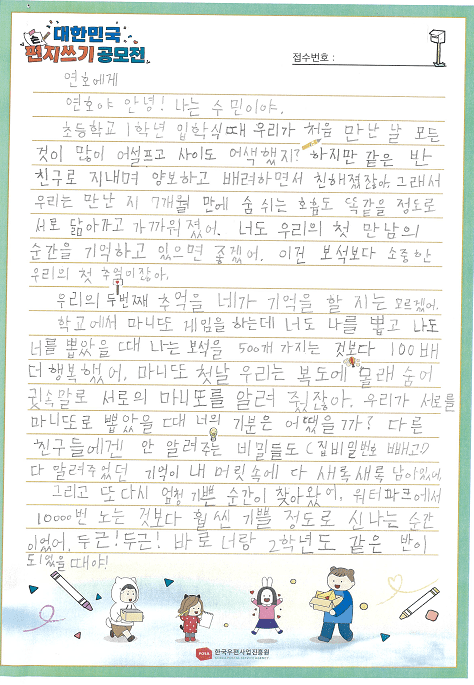 대한민국
편지쓰기 공모전
접수번호 :
연호에게
연호야 안녕! 나는 수민이야.
초등학교 1학년 입학식때 우리가 처음 만난 날 모든
것이 많이 어설프고 사이도 어색했지? 하지만 같은 반
친구로 지내며 양보하고 배려하면서 친해졌잖아. 그래서
우리는 만난 지 7개월 만에 숨 쉬는 호흡도 똑같을 정도로
서로 닮아가고 가까워졌어. 너도 우리의 첫 만남의
순간을 기억하고 있으면 좋겠어. 이건 보석보다 소중한
우리의 첫 추억이잖아.
우리의 두번째 추억을 네가 기억을 할 지는 모르겠어.
학교에서 마니또 게임을 하는데 너도 나를 뽑고 나도
너를 뽑았을 때 나는 보석을 500개 가지는 것보다 100배
더 행복했어, 마니또 첫날 우리는 복도에 몰래 숨어
귓속말로 서로의 마니또를 알려 줬잖아. 우리가 서로를
마니또로 뽑았을 때 너의 기분은 어땠을까? 다른
친구들에게 안 알려주는 비밀들도 (집비밀번호 빼고♡)
다 알려주었던 기억이 내 머릿속에 다 새록새록 담아있어.
그리고 또다시 엄청 기쁜 순간이 찾아왔어, 워터파크에서
10000번 노는 것보다 훨씬 기쁠 정도로 신나는 순간
이었어. 두근! 두근! 바로 너랑 2학년도 같은 반이
되었을 때야!
POSA 한국우편사업진흥원